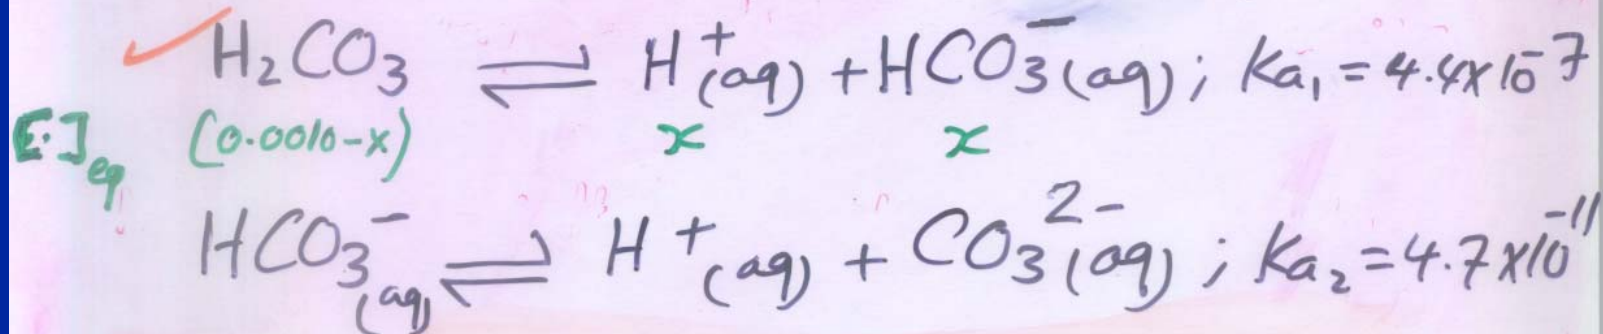 H₂CO₃ ⇌ H⁺(aq) + HCO₃⁻(aq) ; Ka₁ = 4.4x10⁻⁷
[·]eq (0.0010-x) x x
HCO₃⁻(aq) ⇌ H⁺(aq) + CO₃²⁻(aq) ; Ka₂ = 4.7x10⁻¹¹